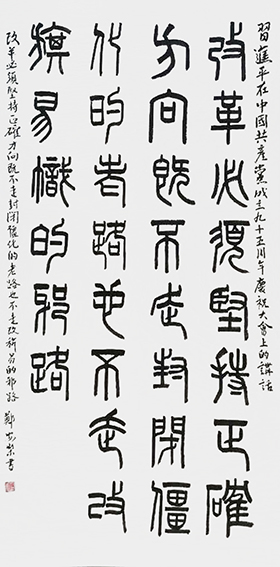 習近平在中國共產黨成立九十五周年慶祝大會上的講話
改革必須堅持正確
方向既不走封閉僵
化的老路也不走改
旗易幟的邪路
改革必須堅持正確方向既不走封閉僵化的老路也不走改旗易幟的邪路 鄭 書